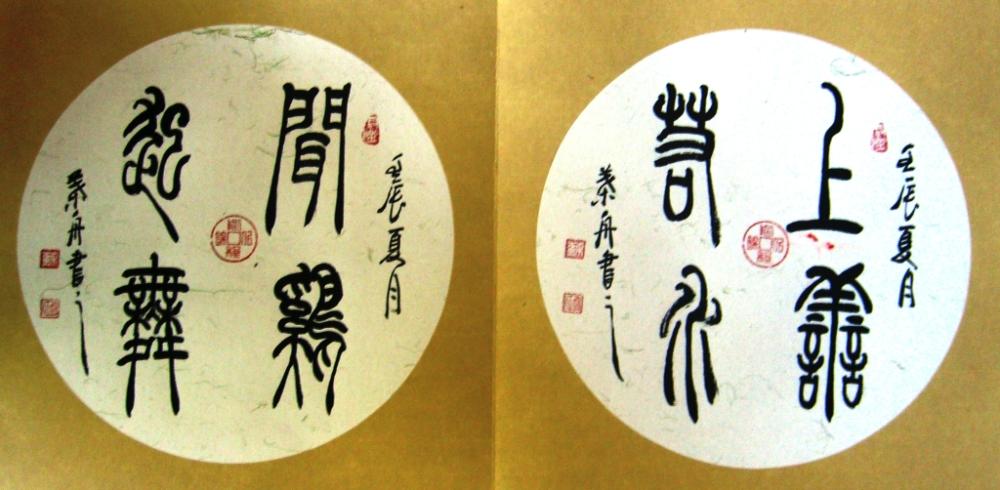 壬辰夏月
上善
若水
秦舟書之
壬辰夏月
聞鷄
起舞
秦舟書之